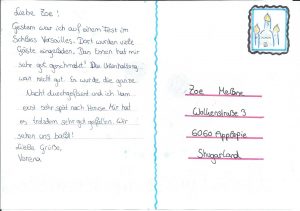 Liebe Zoe!
Gestern war ich auf einem Fest im
Schloss Versailles. Dort wurden viele
Gäste eingeladen. Das Essen hat mir
sehr gut geschmeckt! Die Unterhaltung
war recht gut. Es wurde die ganze
Nacht durchgefeiert und ich kam
erst sehr spät nach Hause. Mir hat
es trotzdem sehr gut gefallen. Wir
sehen uns bald!
Liebe Grüße,
Verena
Zoe
Wolkenstraße 3
6060